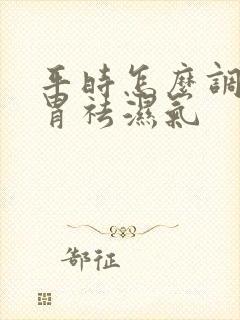 平時怎麼調
胃祛濕氣
郜征